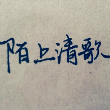 陌上清歌